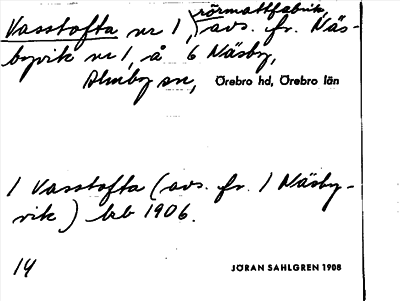 rörmattfabrik,
Vasstofta nr 1, avs. fr. Näs-
byvik nr 1, å 6 Näsby,
Almby sn, Örebro hd, Örebro län
1 Vasstofta (avs. fr. 1 Näsby-
vik) lrb 1906.
14 JÖRAN SAHLGREN 1908